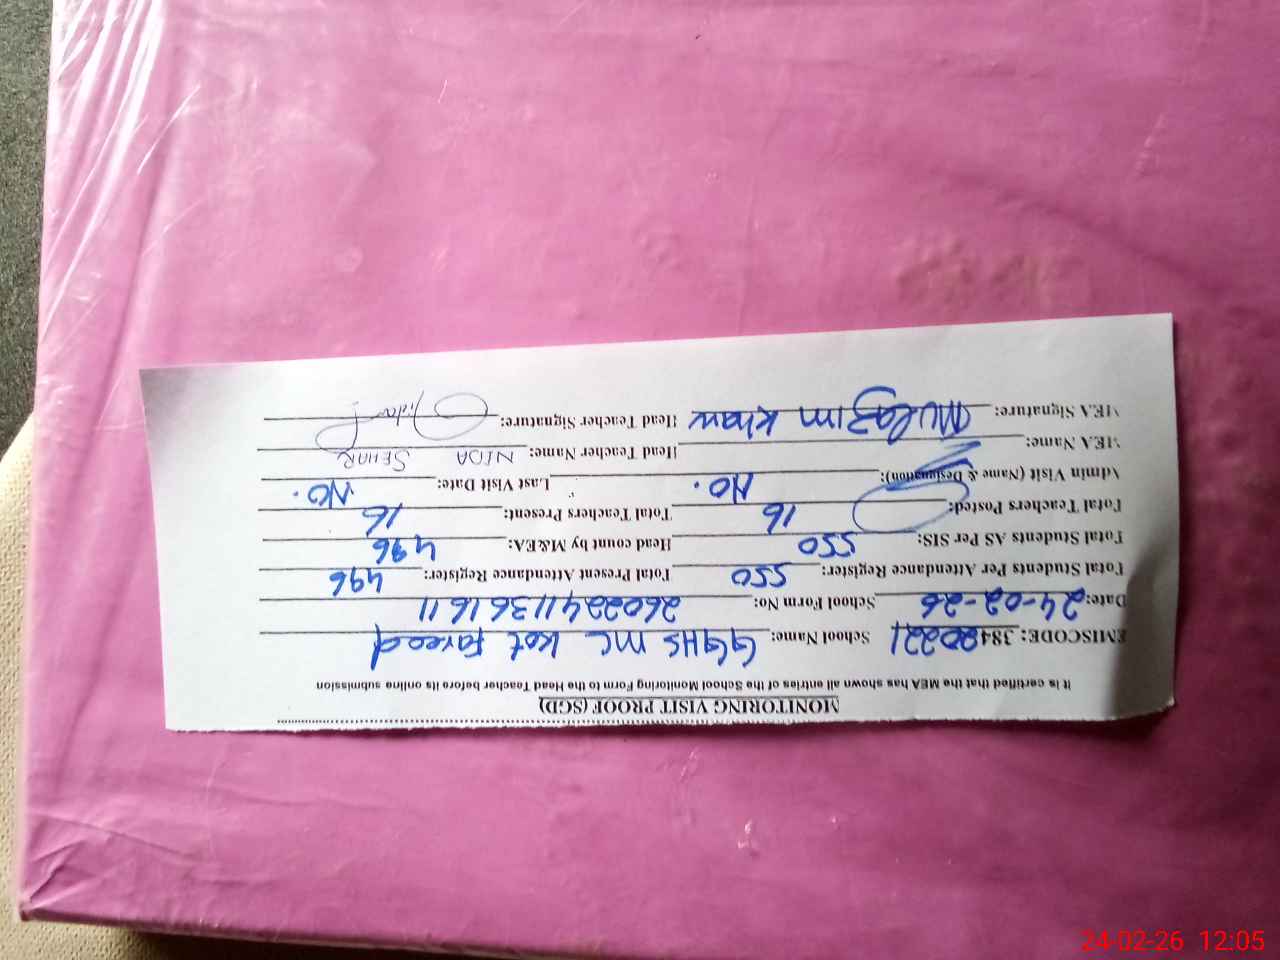 MONITORING VISIT PROOF (SGD)
It is certified that the MEA has shown all entries of the School Monitoring Form to the Head Teacher before its online submission
EMISCODE: 38480221 School Name: GGHS MC Kot Fareed
Date: 24-02-26 School Form No: 2602241136 1611
Total Students Per Attendance Register: 550 Total Present Attendance Register: 496
Total Students AS Per SIS: 550 Head count by M&EA: 496
Total Teachers Posted: 16 Total Teachers Present: 16
Admin Visit (Name & Designation): No. Last Visit Date: No.
MEA Name: Head Teacher Name: NIDA SEHAR
MEA Signature: Mulazim Khan Head Teacher Signature:
24-02-26 12:05